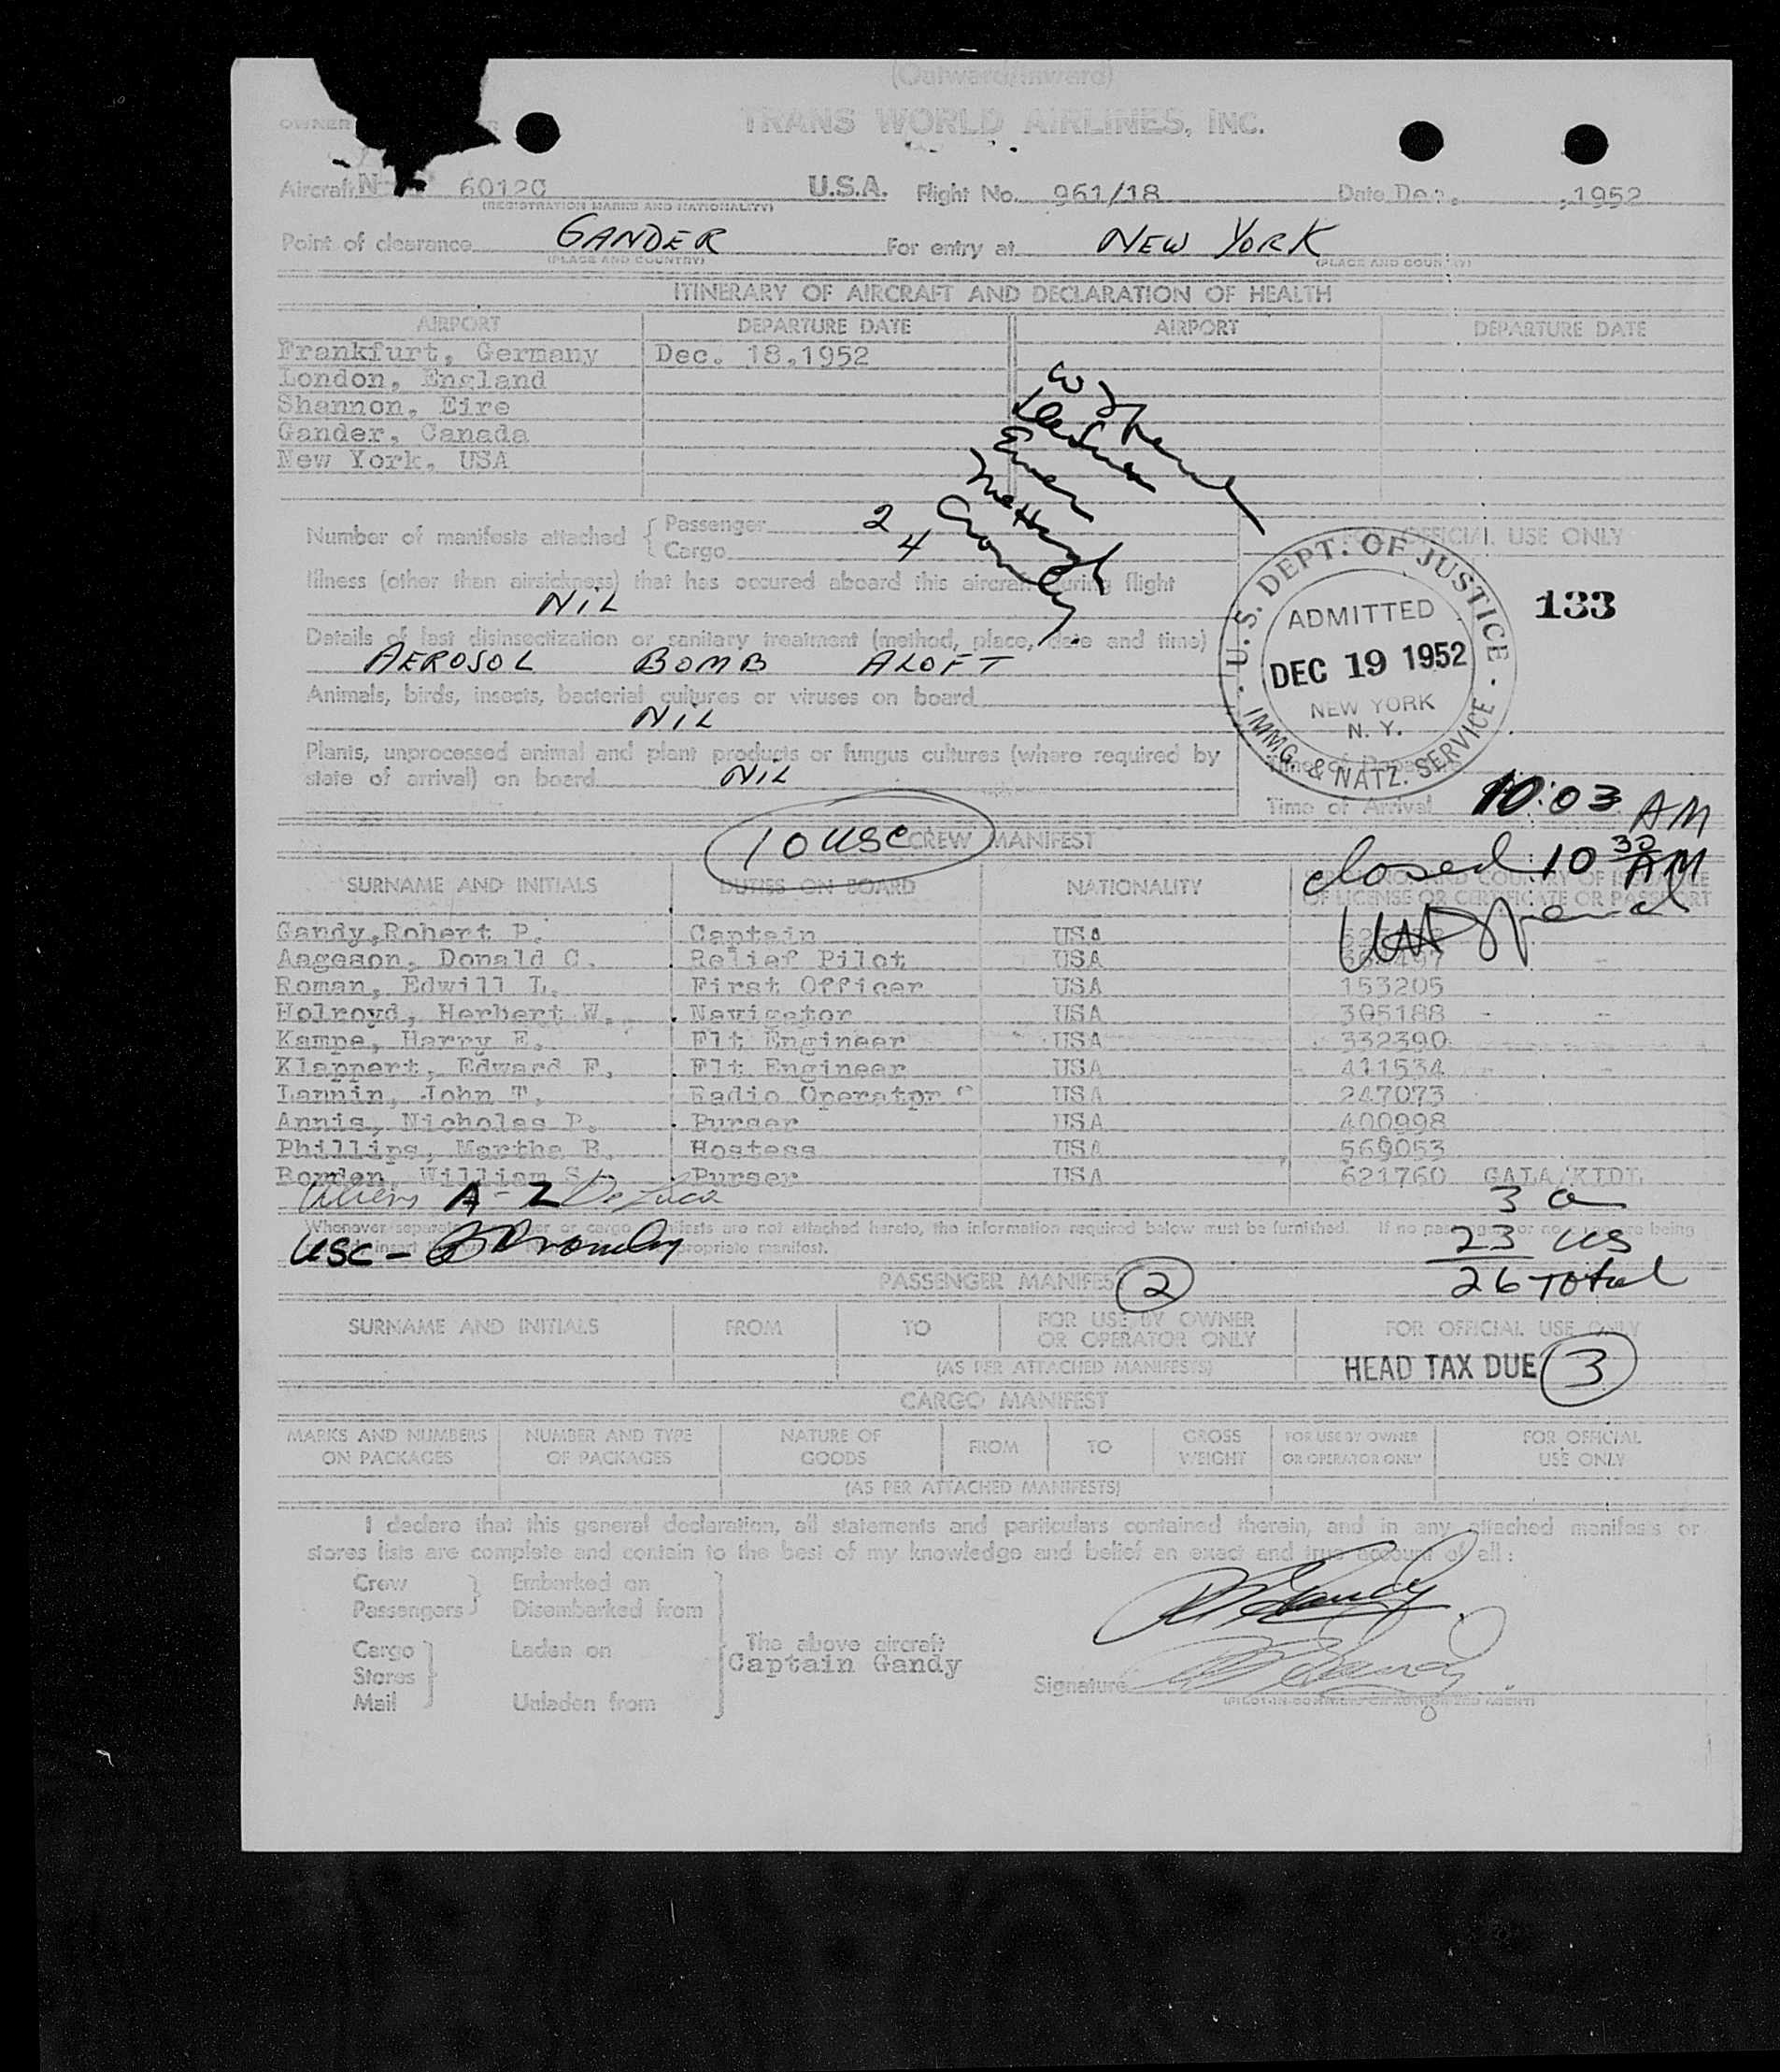 (Outward/Inward)
OWNER
TRANS WORLD AIRLINES, INC.
Aircraft N 6012C U.S.A. Flight No. 961/18 Date Dec. ,1952
(REGISTRATION MARKS AND NATIONALITY)
Point of clearance GANDER For entry at NEW YORK
(PLACE AND COUNTRY) (PLACE AND COUNTRY)
ITINERARY OF AIRCRAFT AND DECLARATION OF HEALTH
AIRPORT DEPARTURE DATE AIRPORT DEPARTURE DATE
Frankfurt, Germany Dec. 18,1952
London, England
Shannon, Eire
Gander, Canada
New York, USA
Number of manifests attached { Passenger 2
Cargo 4
FOR OFFICIAL USE ONLY
Illness (other than airsickness) that has occured aboard this aircraft during flight
NIL
Details of last disinsectization or sanitary treatment (method, place, date and time)
AEROSOL BOMB ALOFT
Animals, birds, insects, bacterial cultures or viruses on board
NIL
Plants, unprocessed animal and plant products or fungus cultures (where required by
state of arrival) on board NIL
U.S. DEPT. OF JUSTICE
ADMITTED
DEC 19 1952
NEW YORK
N. Y.
IMMG. & NATZ. SERVICE
133
Time of Arrival 10:03 AM
closed 10 30 AM
10 USC CREW MANIFEST
SURNAME AND INITIALS DUTIES ON BOARD NATIONALITY NO. AND COUNTRY OF ISSUANCE
OF LICENSE OR CERTIFICATE OR PASSPORT
Gandy,Robert P. Captain USA
Aageson, Donald C. Relief Pilot USA
Roman, Edwill L. First Officer USA 153205
Holroyd, Herbert W. Navigator USA 305188
Kampe, Harry E. Flt Engineer USA 332390
Klappert, Edward F. Flt Engineer USA 411534
Lannin, John T. Radio Operator USA 247073
Annis, Nicholas P. Purser USA 400998
Phillips, Martha B. Hostess USA 569053
Borden, William S. Purser USA 621760 GALA/KIDL
Aliens A-Z De Luca
3 a
Whenever separate or cargo manifests are not attached hereto, the information required below must be furnished. If no or no are being
insert appropriate manifest.
USC -
23 US
26 Total
PASSENGER MANIFEST 2
SURNAME AND INITIALS FROM TO FOR USE BY OWNER
OR OPERATOR ONLY FOR OFFICIAL USE ONLY
(AS PER ATTACHED MANIFESTS)
HEAD TAX DUE 3
CARGO MANIFEST
MARKS AND NUMBERS
ON PACKAGES NUMBER AND TYPE
OF PACKAGES NATURE OF
GOODS FROM TO GROSS
WEIGHT FOR USE BY OWNER
OR OPERATOR ONLY FOR OFFICIAL
USE ONLY
(AS PER ATTACHED MANIFESTS)
I declare that this general declaration, all statements and particulars contained therein, and in any attached manifests or
stores lists are complete and contain to the best of my knowledge and belief an exact and true account of all:
Crew
Passengers
Embarked on
Disembarked from
Cargo
Stores
Mail
Laden on
Unladen from
The above aircraft
Captain Gandy
R P Gandy
Signature R P Gandy
(PILOT-IN-COMMAND OR AUTHORIZED AGENT)